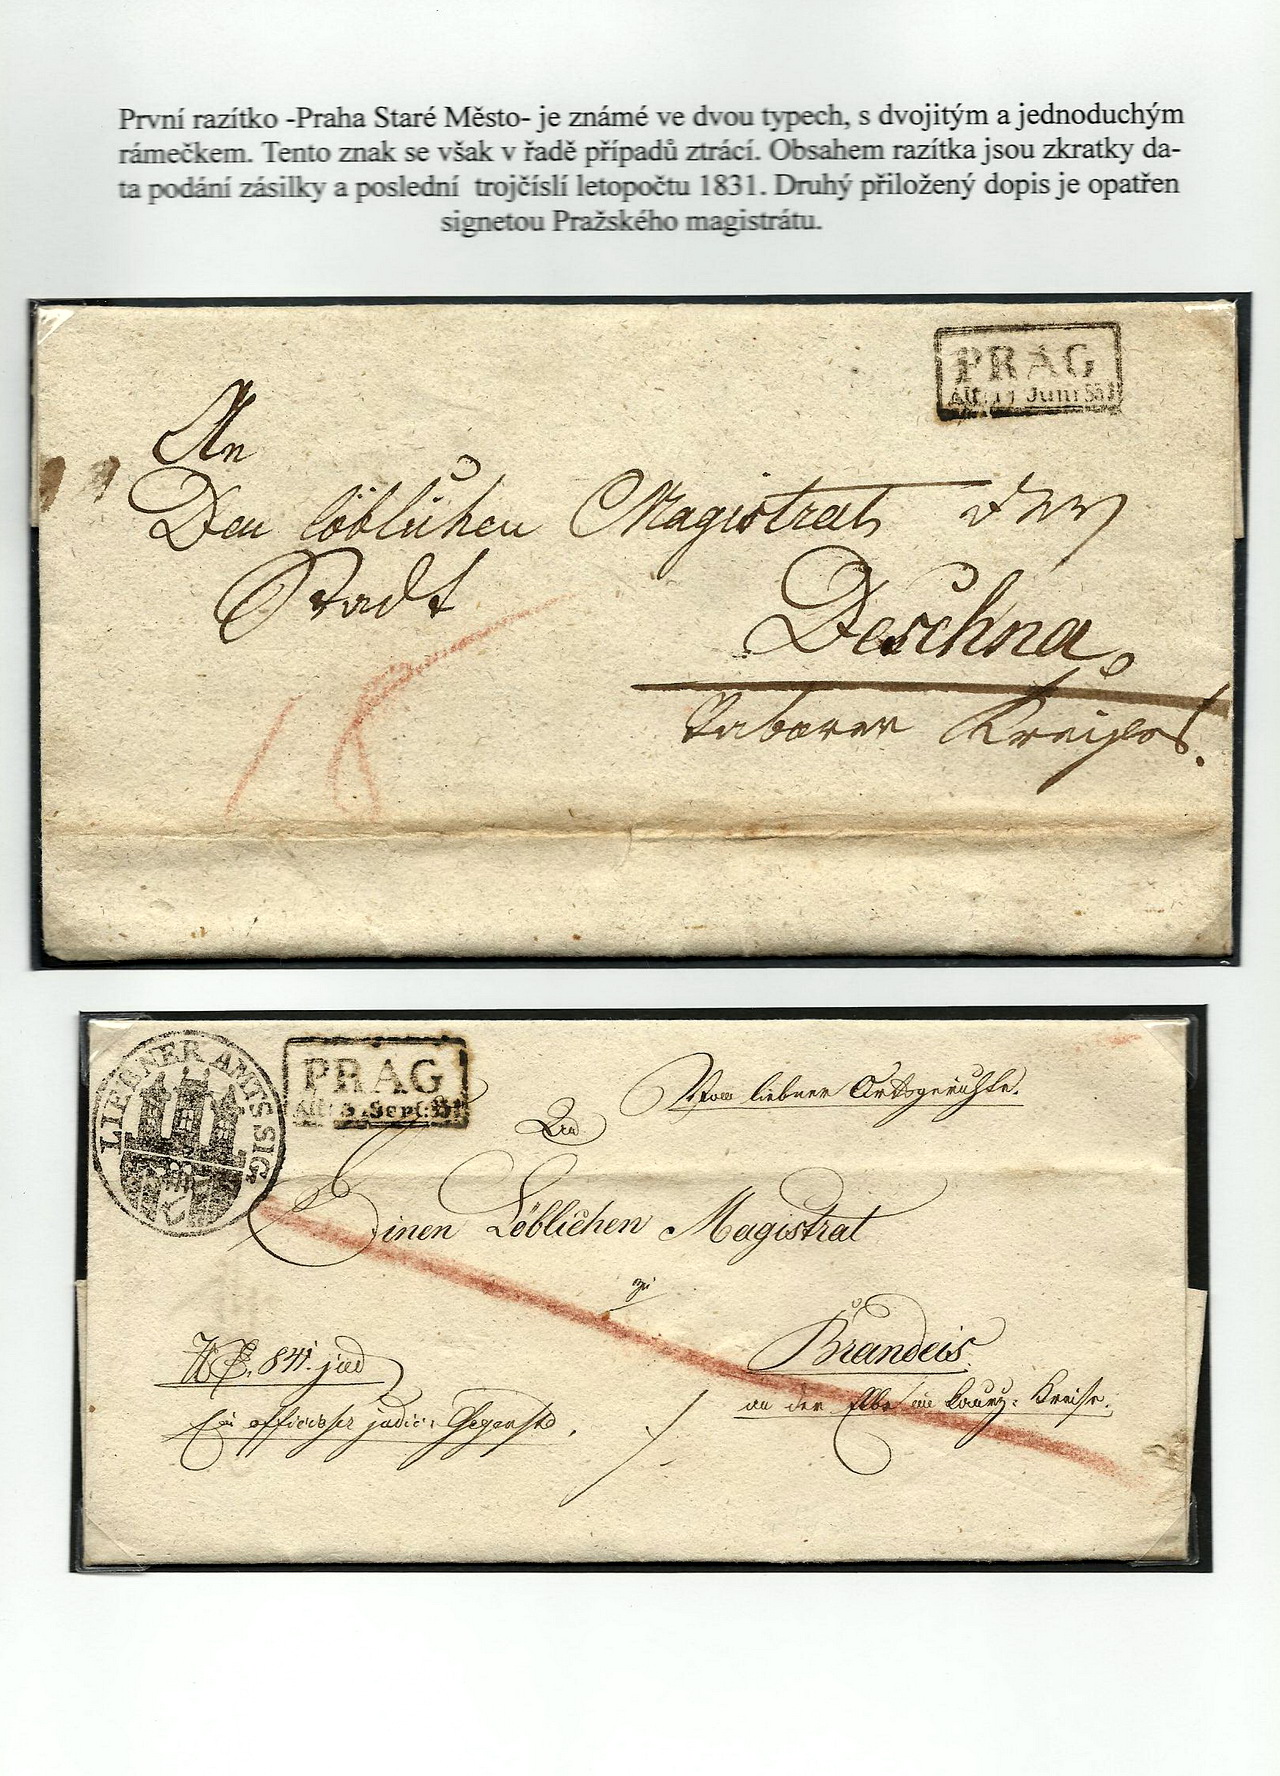 První razítko -Praha Staré Město- je známé ve dvou typech, s dvojitým a jednoduchým
rámečkem. Tento znak se však v řadě případů ztrácí. Obsahem razítka jsou zkratky da-
ta podání zásilky a poslední trojčíslí letopočtu 1831. Druhý přiložený dopis je opatřen
signetou Pražského magistrátu.
PRAG
Alt: 11 Juni 831
An
Den löblichen Magistrat der
Stadt
Deschna
Taborer Kreises.
18
LIEBNER AMTS SIG.
PRAG
Alt: 3 Sept: 831
Vom liebner Ortsgerichte.
An
Einen Löblichen Magistrat
zu
Brandeis
an der Elbe im Kaurz: Kreise.
841. jud
Ex officioser judic: Gegenstd.